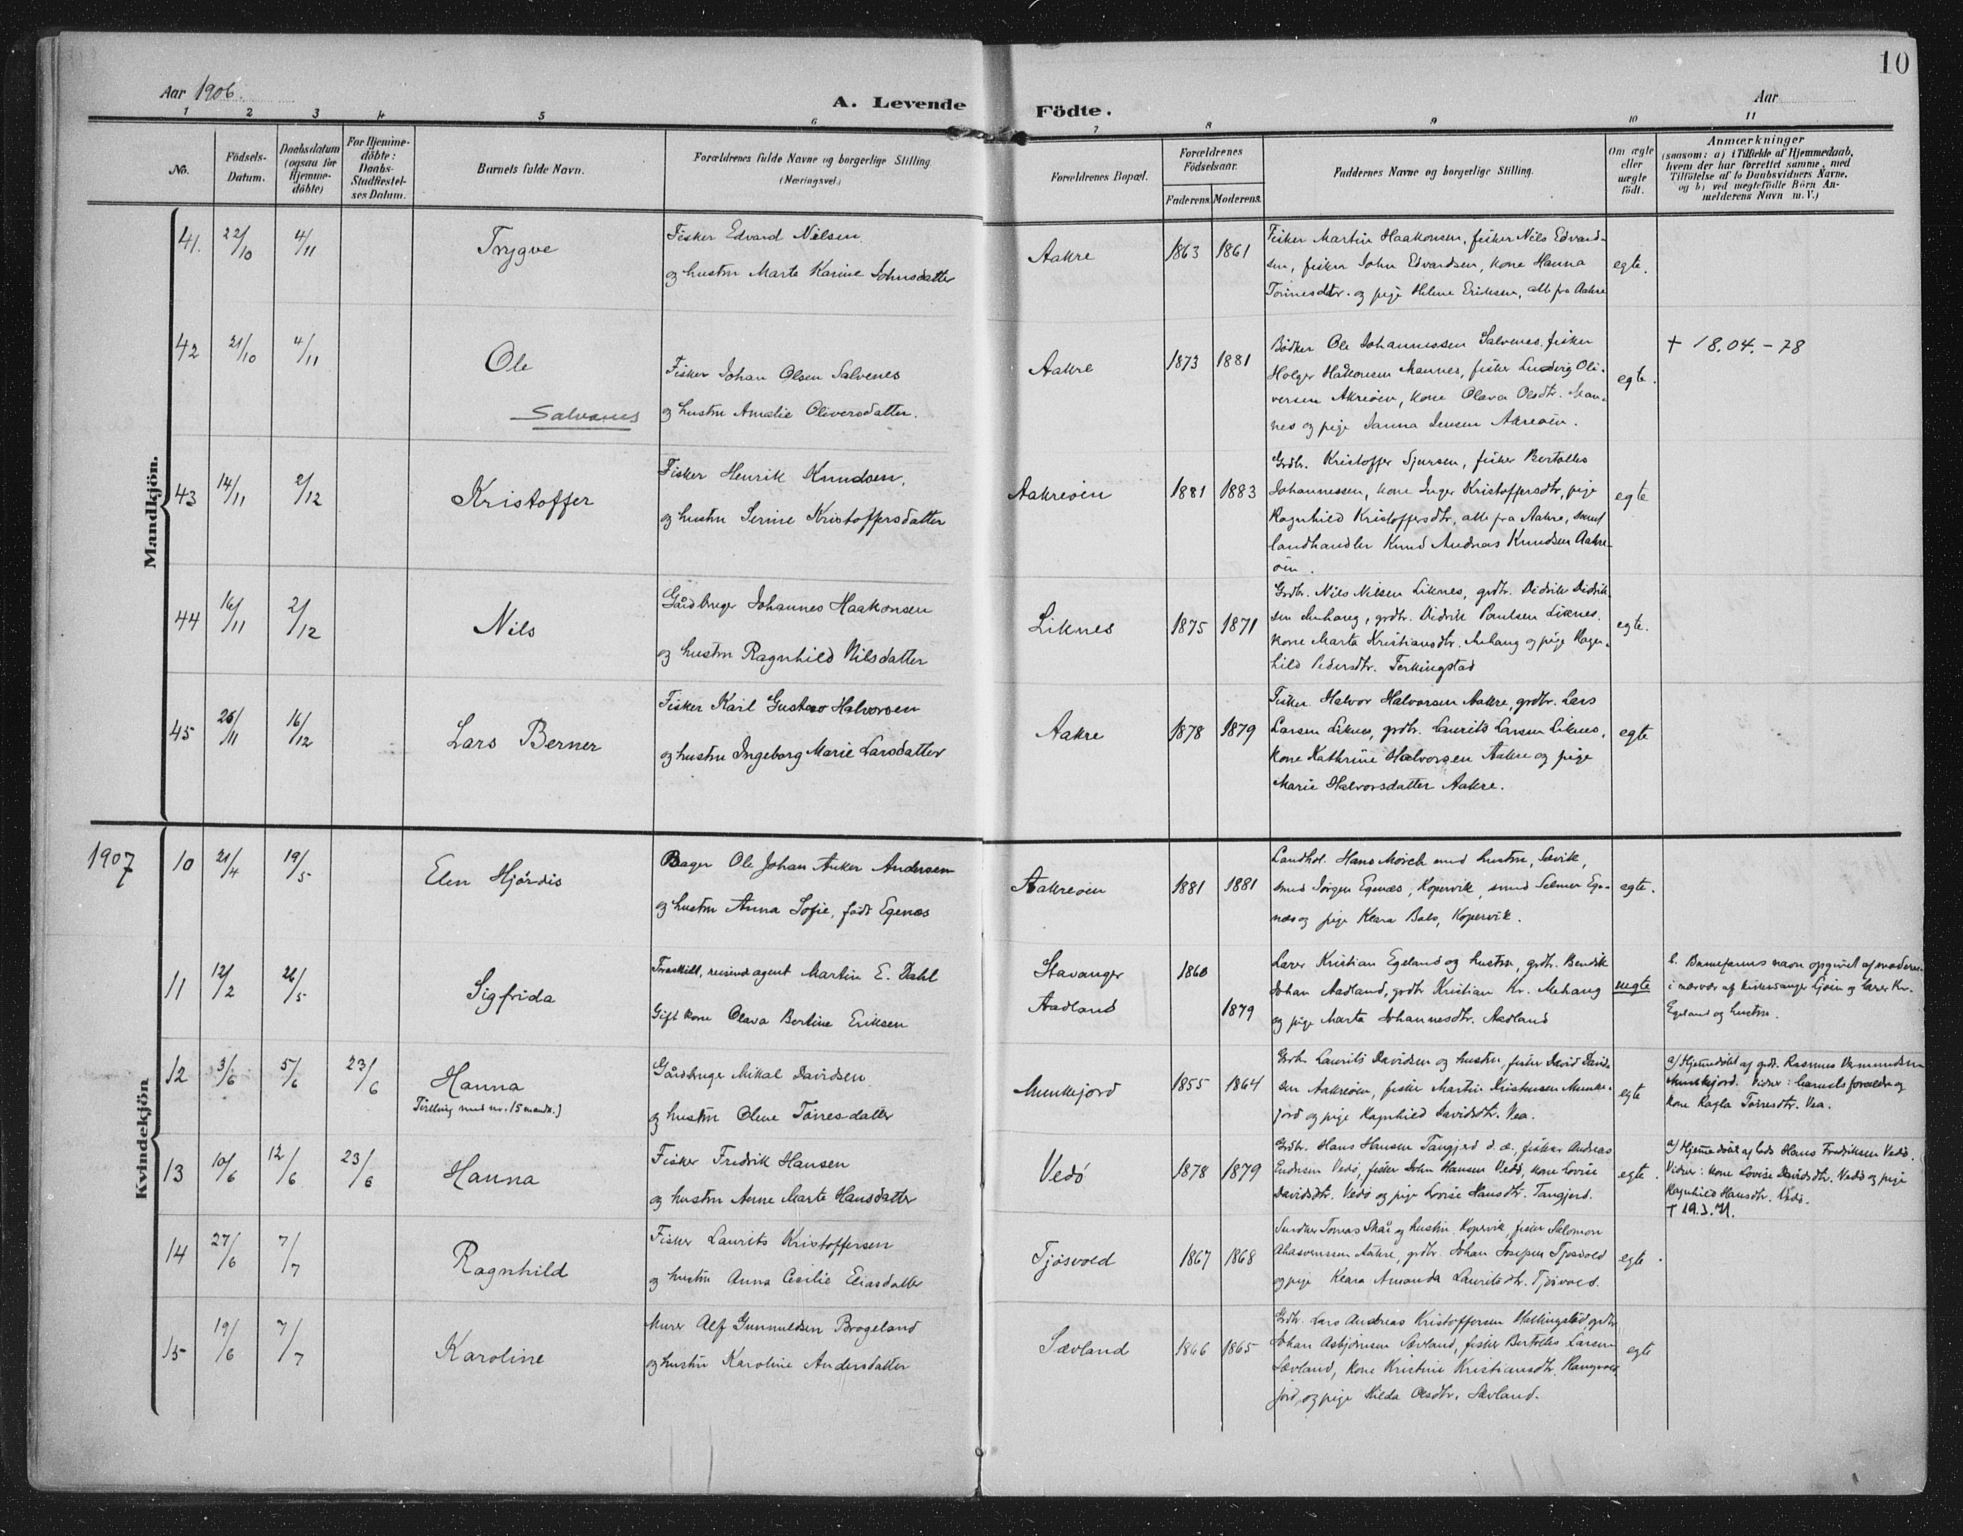 10
Aar 1906.
A. Levende Födte.
Aar
1 2 3 4 5 6 7 8 9 10 11
No.
Födsels-
Datum.
Daabsdatum
(ogsaa for
Hjemme-
döbte)
For Hjemme-
döbte:
Daabs-
Stadfæstel-
ses Datum.
Barnets fulde Navn.
Forældrenes fulde Navne og borgerlige Stilling.
(Næringsvei)
Forældrenes Bopæl.
Forældrenes
Födselsaar.
Faderens. Moderens.
Faddernes Navne og borgerlige Stilling.
Om ægte
eller
uægte
födt.
Anmærkninger
(saasom: a) i Tilfælde af Hjemmedaab,
hvem der har forrettet samme, med
Tilföielse af to Daabsvidners Navne,
og b) ved uægtefödte Börn An-
melderens Navn m. V.)
Mandkjön.
41. 22/10 4/11 Trygve
Fisker Edvard Nilsen
og hustru Marte Karine Johnsdatter
Aakre 1863 1861
Fisker Martin Haakonsen, fisker Nils Edvard-
sen, fisker John Edvardsen, kone Hanna
Tønnesdtr. og pige Helene Eriksen, alle fra Aakre
egte.
42 21/10 4/11 Ole
Salvanes
Fisker Johan Olsen Salvenes
og hustru Amalie Oliversdatter.
Aakre 1873 1881
Bødker Ole Johannessen Salvenes, fisker
Holger Håkonsen Mannes, fisker Ludvig Oli-
versen Akreøen, kone Olava Olsdtr. Man-
nes og pige Janna Jensen Aakreøen.
egte.
+ 18.04.-78
43 14/11 2/12 Kristoffer
Fisker Henrik Knudsen,
og hustru Serine Kristoffersdatter
Aakreøen 1881 1883
Grdbr. Kristoffer Sjursen, fisker Bertolles
Johannessen, kone Inger Kristoffersdtr, pige
Ragnhild Kristoffersdtr, alle fra Aakre, samt
landhandler Knud Andreas Knudsen Aakre-
øen.
egte
44 16/11 2/12 Nils
Gårdbruger Johannes Haakonsen
og hustru Ragnhild Nilsdatter
Liknes 1875 1871
Grdbr. Nils Nilsen Liknes, grdbr. Didrik Didrik-
sen Mehaug, grdbr. Didrik Paulsen Liknes,
kone Marta Kristiansdtr. Mehaug og pige Ragn-
hild Pedersdtr. Ferkingstad
egte.
45 25/11 16/12 Lars Berner
Fisker Karl Gustav Halvorsen
og hustru Ingeborg Marie Larsdatter
Aakre 1878 1879
Fisker Halvor Halvorsen Aakre, grdbr. Lars
Larsen Liknes, grdbr. Laurits Larsen Liknes,
kone Kathrine Halvorsen Aakre og pige
Marie Halvorsdatter Aakre.
egte
1907
Kvindekjön
10 21/4 19/5 Elen Hjørdis
Bager Ole Johan Anker Andersen
og hustru Anna Sofie, født Egenæs
Aakreøen 1881 1881
Landhdl. Hans Mørch med hustru, Sævik,
smed Jørgen Egenæs, Kopervik, smed Selmer Ege-
næs og pige Klara Bals, Kopervik.
egte.
11 12/2 26/5 Sigfrida
Fraskilt, reisendagent Martin E. Dahl
Gift kone Olava Bertine Eriksen
Stavanger 1860
Aadland 1879
Lærer Kristian Egeland og hustru, grdbr. Bendik
Johan Aadland, grdbr. Kristian Kr. Mehaug
og pige Marta Johannesdtr. Aadland
uegte
b. Barnefarens navn opgivet af moderen
i nærvær af kirkesanger Gjøen og Lærer Kr.
Egeland og hustru.
12 3/6 5/6 23/6 Hanna
Tvilling med nr. 15 mandk.)
Gårdbruger Mikal Davidsen
og hustru Olene Tørresdatter
Munkejord 1855 1864
Grdbr. Laurits Davidsen og hustru, fisker David David-
sen Aakreøen, fisker Martin Kristensen Munke-
jord og pige Ragnhild Davidsdtr. Vea.
egte
a) Hjemmedøbt af grdb. Rasmus Vermundsen
Munkejord. Vidner: barnets forældre og
kone Ragla Tørresdtr. Vea.
13 10/6 12/6 23/6 Hanna
Fisker Fredrik Hansen
og hustru Anne Marte Hansdatter
Vedø 1878 1879
Grdbr. Hans Hansen Tangjerd d.æ., fisker Andreas
Endresen Vedø, fisker John Hansen Vedø, kone Lovise
Davidsdtr. Vedø og pige Lovise Hansdtr. Tangjerd.
egte.
a) Hjemmedøbt af lods Hans Fredriksen Vedø.
Vidner: kone Lovise Davidsdtr. Vedø og pige
Ragnhild Hansdtr. Vedø.
+ 19.3.71.
14 27/6 7/7 Ragnhild
Fisker Laurits Kristoffersen
og hustru Anna Cecilie Eliasdatter
Tjøsvold 1867 1868
Snedker Tomas Skår og hustru Kopervik, fisker Salomon
Ahasverussen Aakre, grdbr. Johan Josefsen Tjøsvold
og pige Klara Amanda Lauritsdtr. Tjøsvold.
egte.
15 19/6 7/7 Karoline
Murer Alf Gunnuldsen Brageland
og hustru Karoline Andersdatter
Sævland 1866 1865
Grdbr. Lars Andreas Kristoffersen Hallingstad, grdbr.
Johan Asbjørnsen Sævland, fisker Bertolles Larsen
Sævland, kone Kristine Kristiansdtr. Rangvald-
jord, og pige Hilda Olsdtr. Sævland.
egte